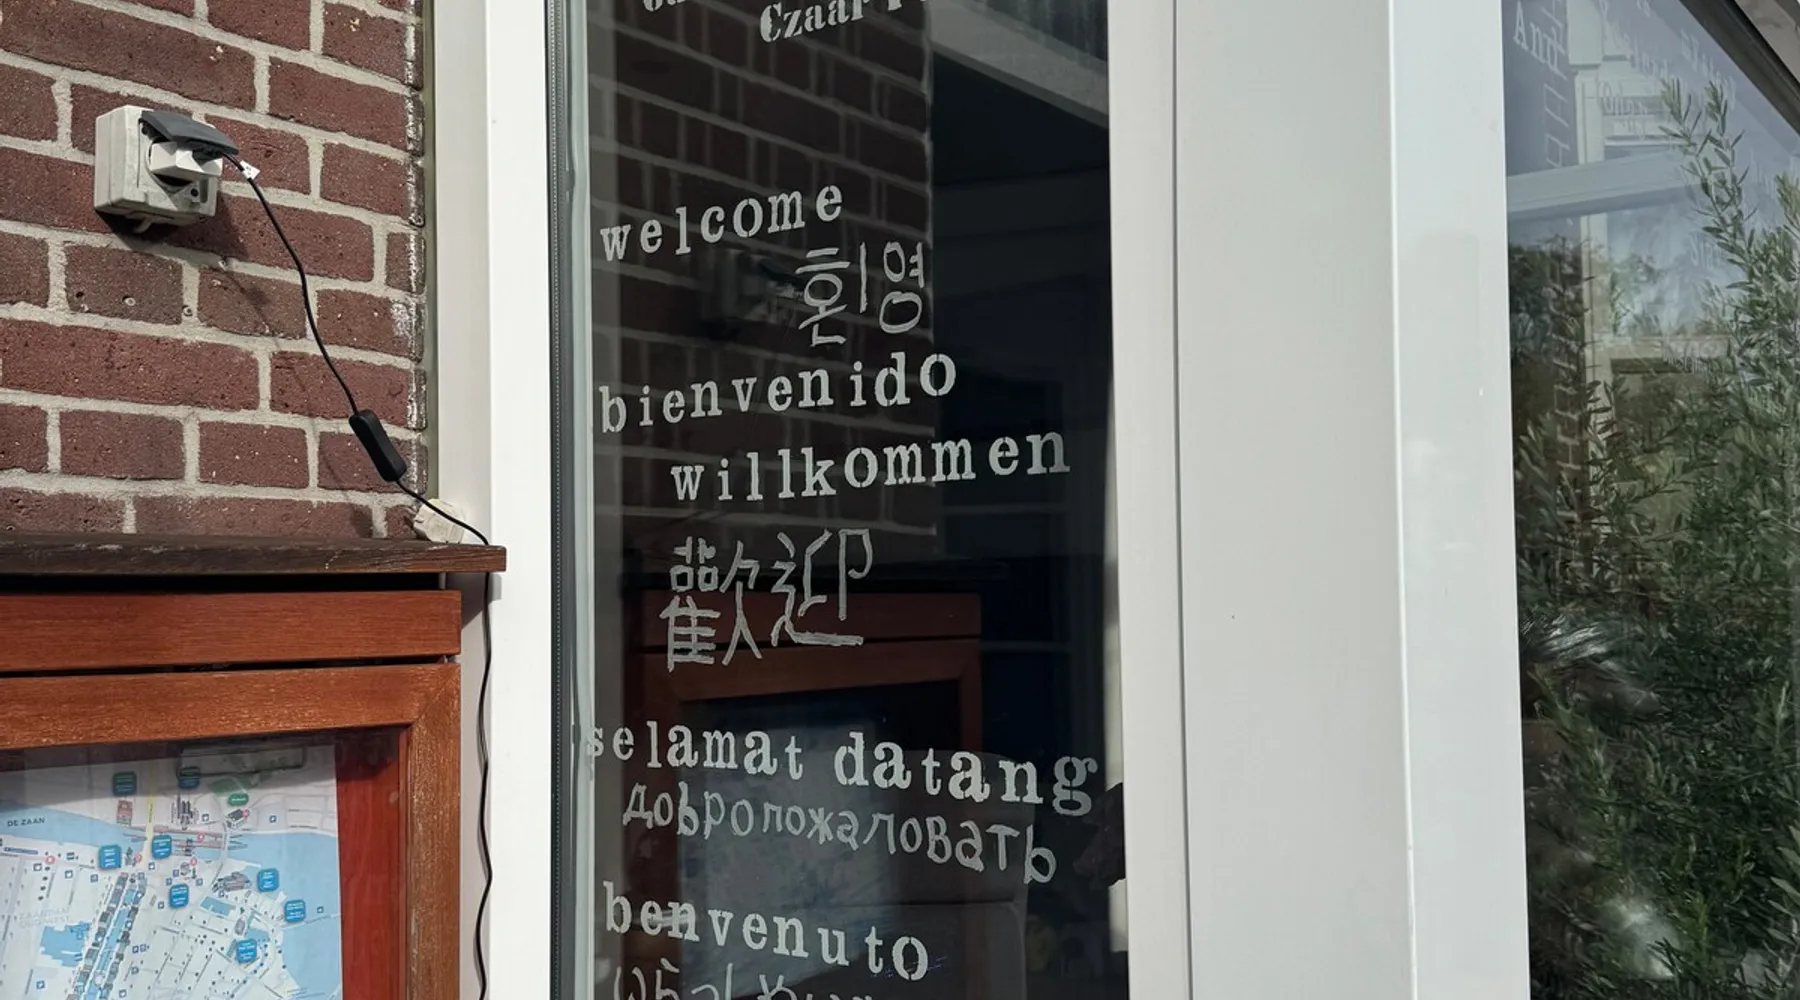 Czaar
welcome
횐영
bienvenido
willkommen
歡迎
selamat datang
добропожаловать
benvenuto
DE ZAAN